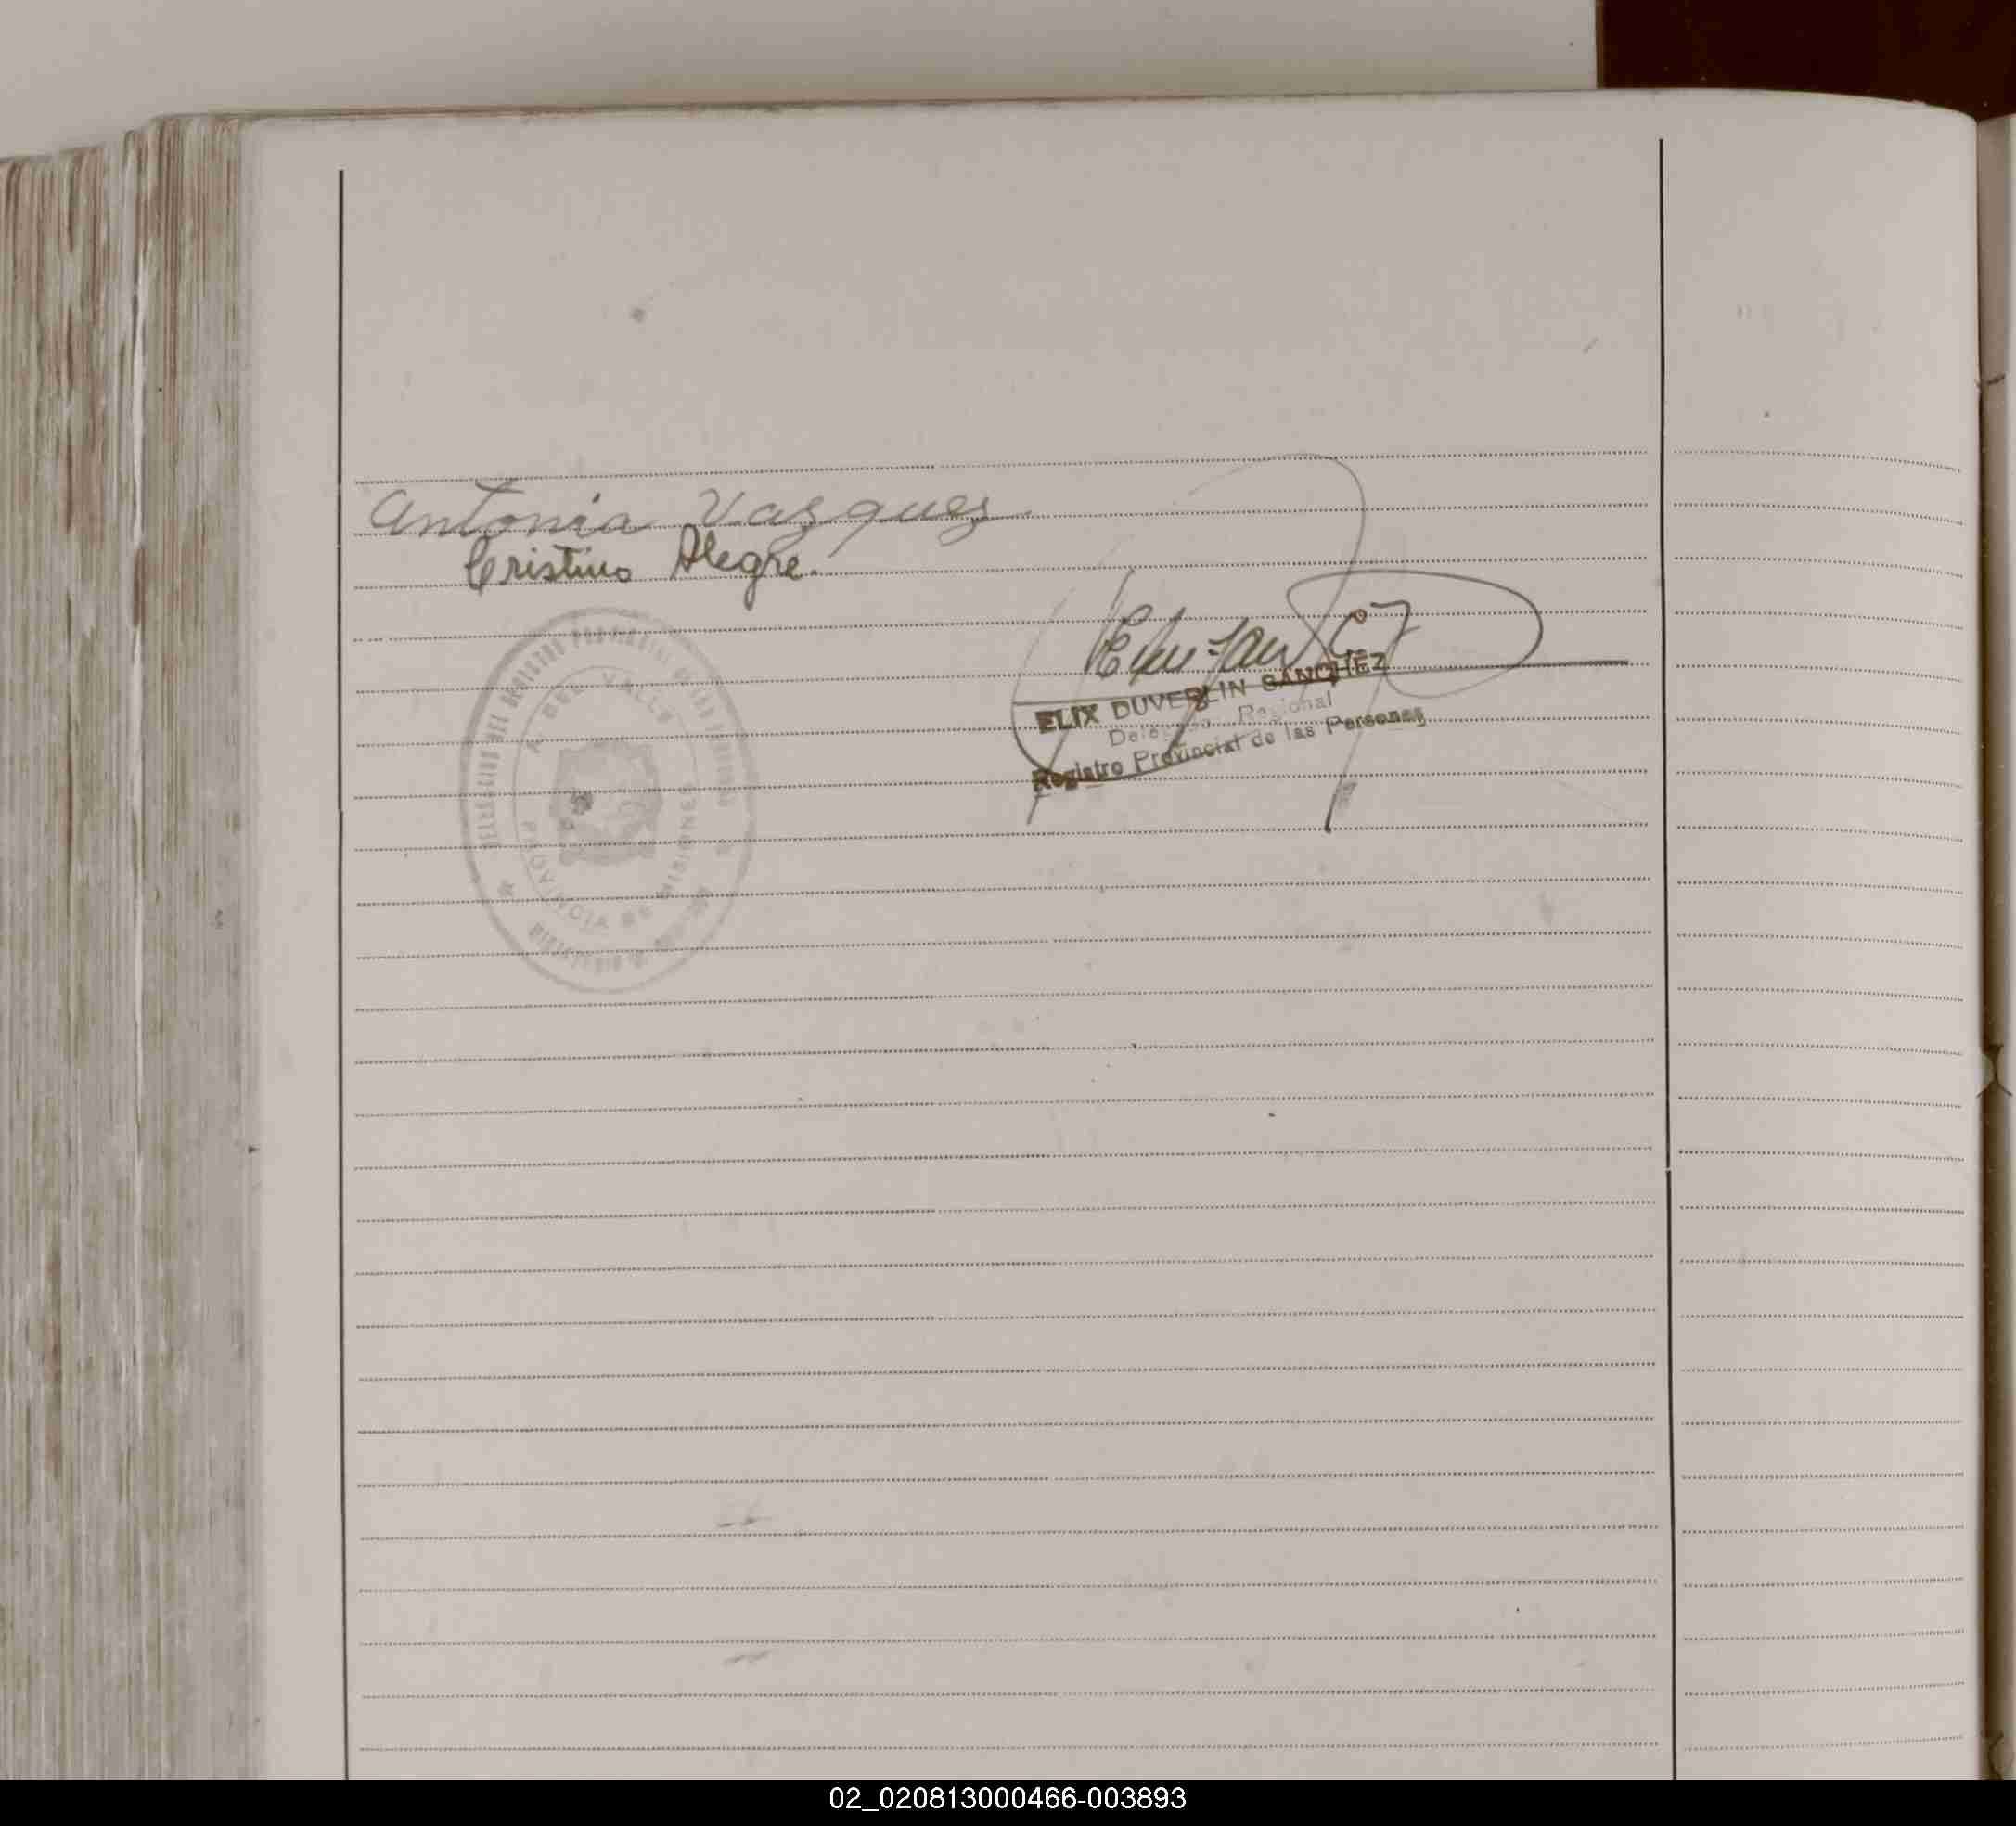 Antonia Vasques
Cristino Alegre.
ELIX DUVERLIN SANCHEZ
Delegado Regional
Registro Provincial de las Personas
DEL VALLE
PROVINCIA DE MISIONES
02_020813000466-003893